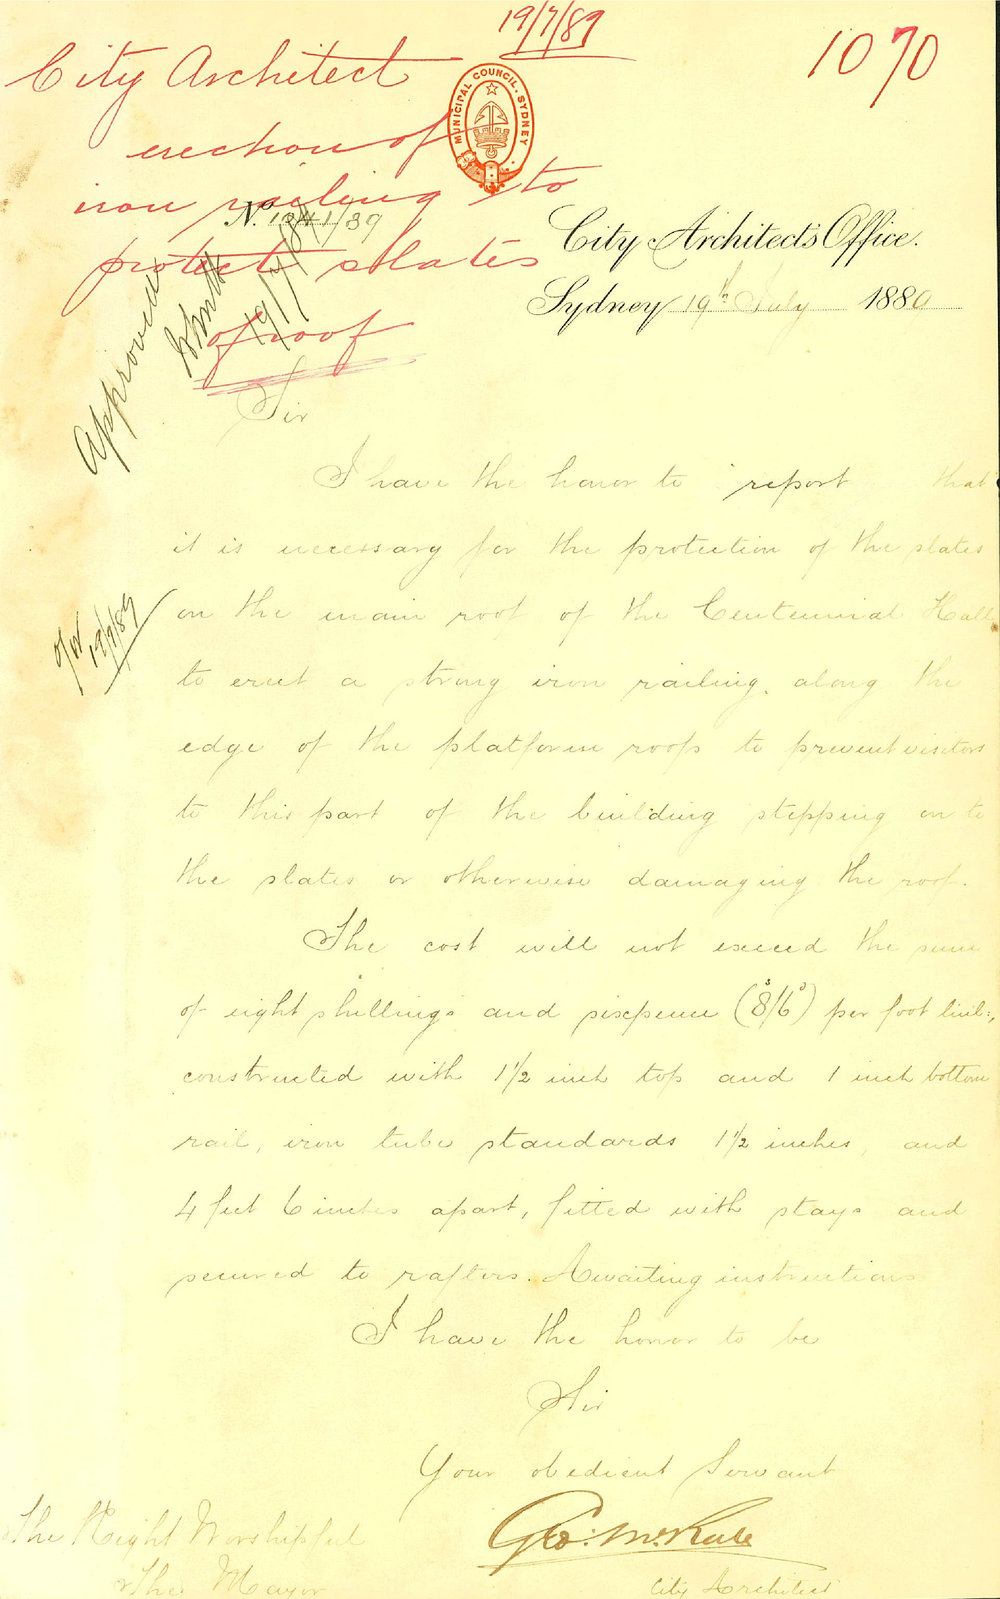 19/7/89
1070
City Architect
erection of
iron railing to
protect slates
of roof
MUNICIPAL COUNCIL. SYDNEY
No. 1341/89
City Architects Office.
Sydney 19th July 1889
Approved
19/7/89
Sir
I have the honor to report that
it is necessary for the protection of the slates
on the main roof of the Centennial Hall
19/7/89
to erect a strong iron railing, along the
edge of the platform roofs to prevent visitors
to this part of the building stepping on to
the slates or otherwise damaging the roof.
The cost will not exceed the sum
of eight shillings and sixpence (8s/6d) per foot linl:,
constructed with 1½ inch top and 1 inch bottom
rail, iron tube standards 1½ inches, and
4 feet 6 inches apart, fitted with stays and
secured to rafters. Awaiting instructions
I have the honor to be
Sir
Your obedient Servant
Geo: McRae
City Architect
The Right Worshipful
The Mayor